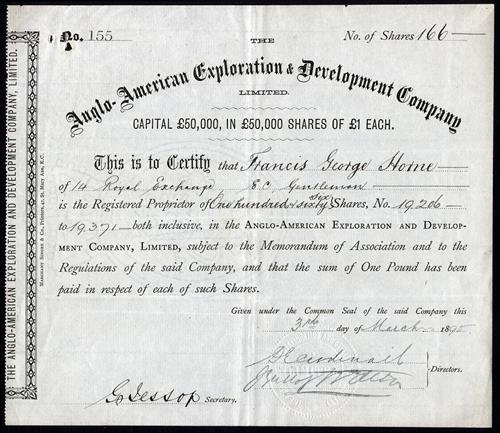 No. 155
No. of Shares 166
THE
Anglo-American Exploration & Development Company
LIMITED.
CAPITAL £50,000, IN £50,000 SHARES OF £1 EACH.
This is to Certify that Francis George Horne
of 14 Royal Exchange E.C. Gentleman
is the Registered Proprietor of One hundred & sixty six Shares, No. 19206
to 19371 both inclusive, in the ANGLO-AMERICAN EXPLORATION AND DEVELOP-
MENT COMPANY, LIMITED, subject to the Memorandum of Association and to the
Regulations of the said Company, and that the sum of One Pound has been
paid in respect of each of such Shares.
Given under the Common Seal of the said Company this
3rd day of March 1895
Directors.
G Jessop Secretary.
THE ANGLO-AMERICAN EXPLORATION AND DEVELOPMENT COMPANY, LIMITED.